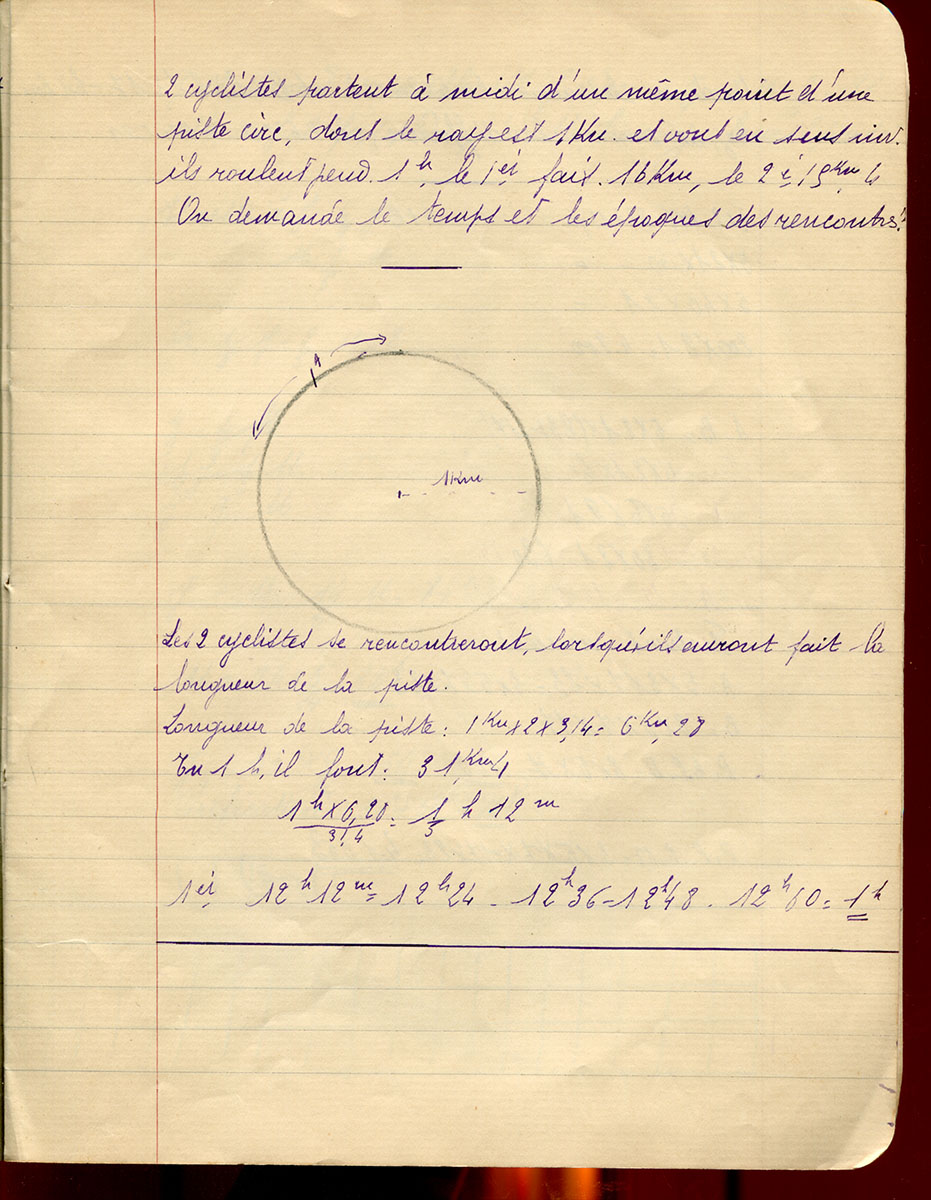 2 cyclistes partent à midi d'un même point d'une
piste circ, dont le ray est 1Km. et vont en sens inv.
ils roulent pend. 1h, le 1er fait 16Km, le 2è 15Km4
On demande le temps et les époques des rencontres.
A
1Km
Les 2 cyclistes se rencontreront, lorsqu'ils auront fait la
longueur de la piste.
Longueur de la piste: 1Km x 2 x 3,14 = 6Km,28
En 1h, il font: 31,Km4
1h x 6,28 / 31,4 = 1/5 h 12m
1er 12h12m = 12h24 - 12h36 - 12h48 - 12h60 = 1h